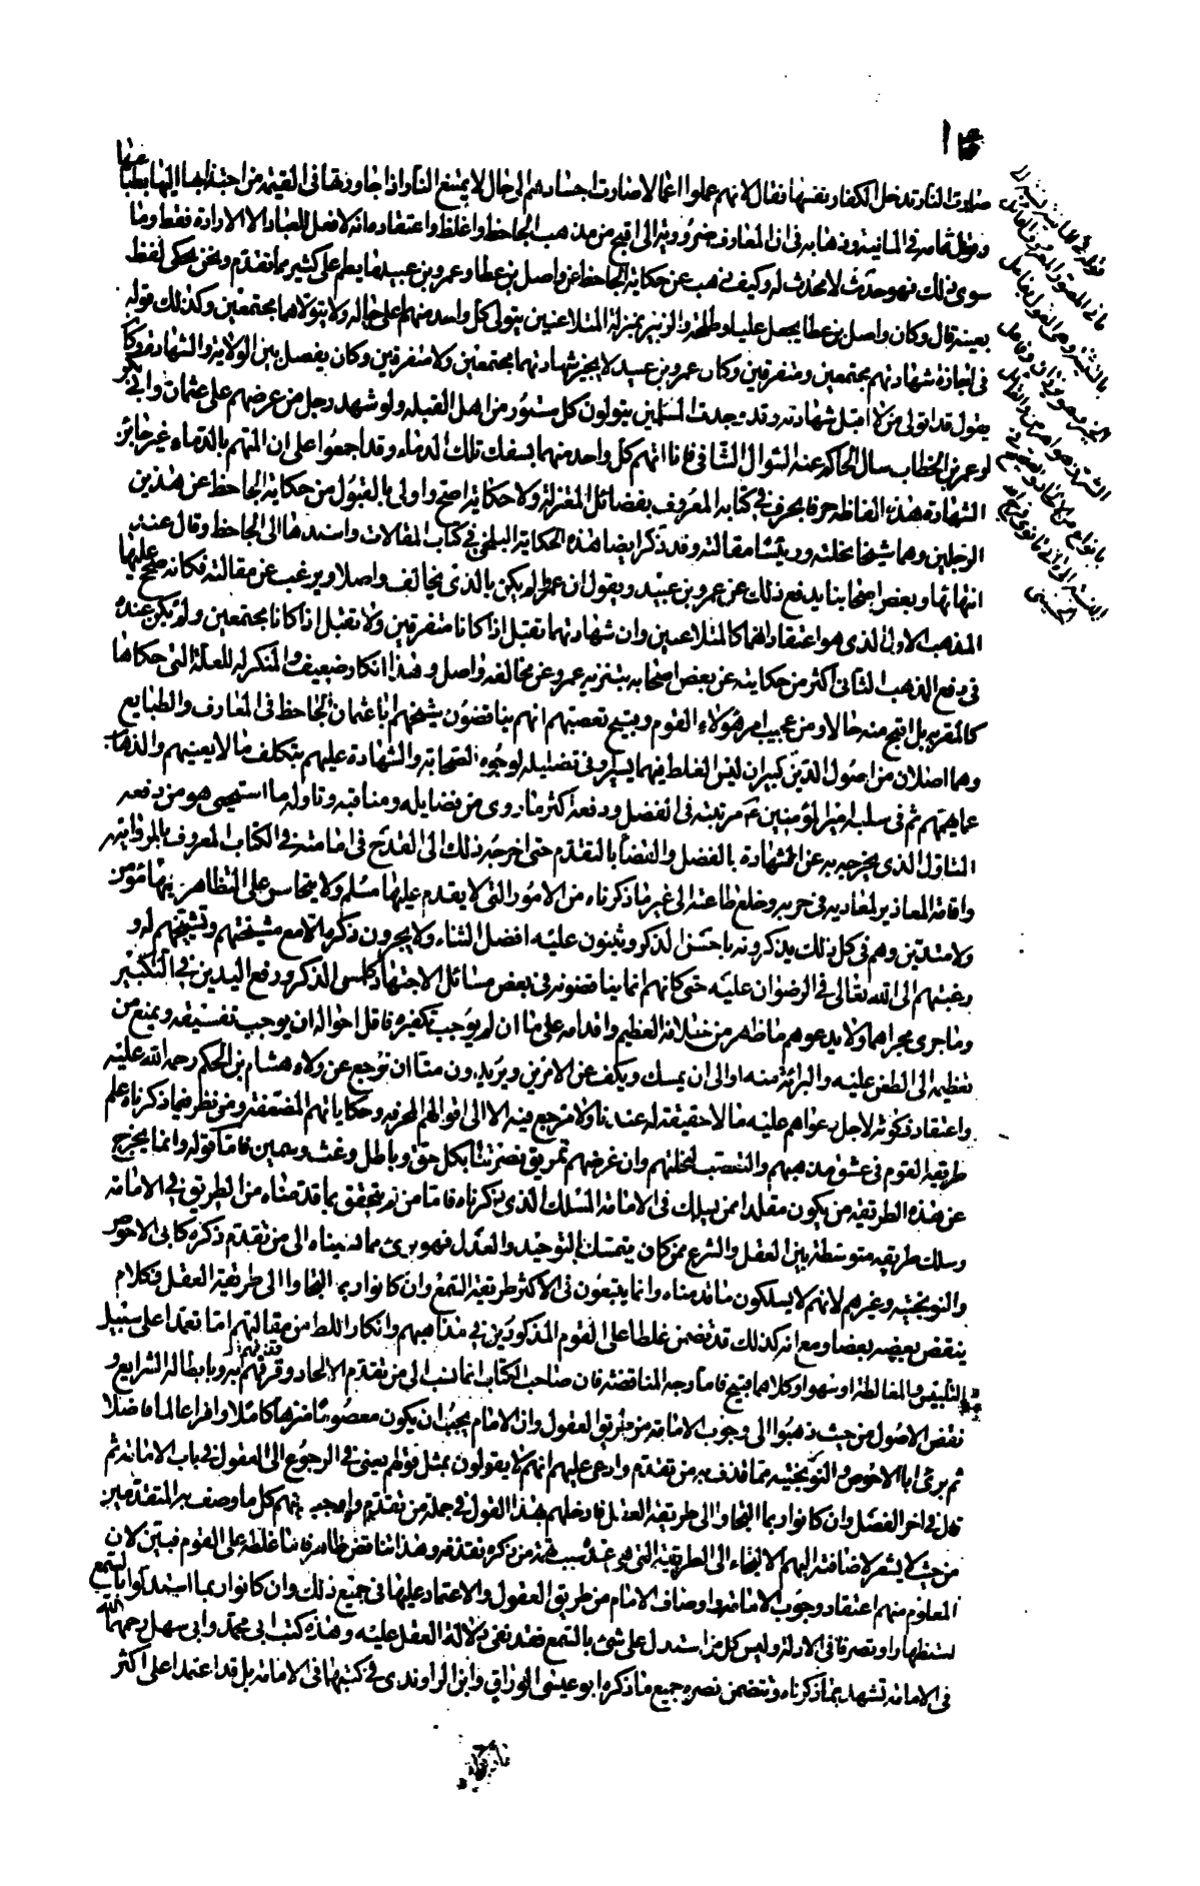 صارت النار تدخل الكفار نفسها فقال لانهم عملوا اعمالا صارت اجسادهم الى حال لا يمتنع النار اذا جاورتها في القيمة من اجتذابها اليها بطباعها
وقول ثمامة في المانية وذهابه في ان المعارف ضرورية الى اقبح من مذهب الجاحظ واغلظ واعتقاده انه لا فعل للعباد الا الارادة فقط وما
سوى ذلك فهو حدث لا محدث له وكيف ذهب عن حكاية الجاحظ عن واصل بن عطا وعمرو بن عبيد ما يطم على كثير مما تقدم ونحن نحكي لفظه
بعينه قال وكان واصل بن عطا يجعل عليا وطلحة والزبير بمنزلة المتلاعنين يتولى كل واحد منهم على حياله ولا يتولاهما مجتمعين وكذلك قوله
في اجازة شهادتهم مجتمعين ومتفرقين وكان عمرو بن عبيد لا يجيز شهادتهما مجتمعين ولا متفرقين وكان يفصل بين الولاية والشهادة وكان
يقول قد اتولى من لا اقبل شهادته وقد وجدت المسلمين يتولون كل مستور من اهل القبله ولو شهد رجل من عرضهم على عثمان وابي بكر
او عمر بن الخطاب سال الحاكم عنه السؤال الشافي فانا اتهم كل واحد منهما بسفك تلك الدماء وقد اجمعوا على ان المتهم بالدماء غير جائز
الشهادة هذه الفاظه حرفا بحرف في كتابه المعروف بفضائل المعتزلة ولا حكاية اصح واولى بالقبول من حكاية الجاحظ عن هذين
الرجلين وهما شيخا نحلته ورئيسا مقالته وقد ذكر ايضا هذه الحكاية البلخي في كتاب المقالات واسندها الى الجاحظ وقال عند
انتهائها وبعض اصحابنا يدفع ذلك عن عمرو بن عبيد ويقول ان عمرا لم يكن بالذي يخالف واصلا ويرغب عن مقالته فكانه صحح عليها
المذهب الاول الذي هو اعتقاد انهما كالمتلاعنين وان شهادتهما تقبل اذا كانا متفرقين ولا تقبل اذا كانا مجتمعين ولم يكن عنده
في دفع المذهب الثاني اكثر من حكايته عن بعض اصحابه بتنزيه عمرو عن مخالفة واصل وهذا انكار ضعيف والمنكر له للعلة التي حكاها
كالمقر به بل اقبح منه حالا ومن عجيب امر هؤلاء القوم وقبيح تعصبهم انهم يناقضون شيخهم ابا عثمان الجاحظ في المعارف والطبايع
وهما اصلان من اصول الدين كبيران ليس الغلط فيهما يسير وفي تضليله لوجوه الصحابة والشهادة عليهم بتكلف ما لا يعنيهم والذهاب
عما هتهم ثم في سلبه امير المؤمنين ع مرتبته في الفضل ودفعه اكثر ما روي من فضايله ومناقبه وتاوله ما استحيى هو من دفعه
التاول الذي يخرج به عن الشهادة بالفضل والقضأ بالتقدم حتى اخرجه ذلك الى القدح في امامته في الكتاب المعروف بالمروانية
واقامة المعاذير لمعاديه في حربه وخلع طاعته الى غير ما ذكرناه من الامور التي لا يقدم عليها مسلم ولا يتجاسر على التظاهر بها مؤمن
ولا متدين وهم في كل ذلك يذكرونه باحسن الذكر ويثنون عليه افضل الثناء ولا يجرون ذكره الا مع مشيختهم وتشيخهم له و
رغبتهم الى الله تعالى في الرضوان عليه حتى كانهم انما يناقضونه في بعض مسائل الاجتهاد كلمس الذكر ورفع اليدين في التكبير
وما جرى مجراهما ولا يدعوهم ما ظهر من ضلاله العظيم واقدامه على ما ان لم يوجب تكفيره فاقل احواله ان يوجب تفسيقه ويمنع من
تعظيمه الى الطعن عليه والبرائة منه او الى ان يمسك ويكف عن الامرين ويريدون منا ان نرجع عن ولاء هشام بن الحكم رحمه الله عليه
واعتقاد كونه لاجل دعواهم عليه ما لا حقيقة له عندنا ولا مرجع فيه الا الى اقوالهم المحرفه وحكاياتهم المضعفة ومن نظر فيما ذكرناه علم
طريقة القوم في عشق مذهبهم والتعصب لنحلتهم وان غرضهم تمزيق بكل حق وباطل وغث وسمين فاما قوله وانما يخرج
عن هذه الطريقة من يكون مقلدا ممن يسلك في الامامة المسلك الذي ذكرناه فاما من لم يتحقق بما قدمناه من الطريق في الامامة
وسلك طريقه متوسطة بين العقل والشرع ممن كان يتمسك بالتوحيد والعدل فهو برئ مما نسبناه الى من تقدم ذكره كابي الاحوص
والنوبختيه وغيرهم لانهم لا يسلكون ما قدمناه وانما يتبعون في الاكثر طريقة السمع وان كانوا ربما التجاوا الى طريقة العقل فكلام
ينقض بعضه بعضا ومع انه كذلك قد تضمن غلطا على القوم المذكورين في مذاهبهم وانكارا لما من مقالتهم اما تعمدا على سبيل
التلبيس والمغالطة او سهوا وكلاهما قبيح فاما وجه المناقضة فان صاحب الكتاب انما نسب الى من تقدم الالحاد وقرفهم به وبابطال الشرايع و
نقض الاصول من حيث ذهبوا الى وجوب الامامة من طريق العقول وان الامام يجب ان يكون معصوما منزها كاملا وافرا عالما فاضلا
ثم برئ ابا الاحوص والنوبختيه مما قذف به من تقدم وادعى عليهم انهم لا يقولون بمثل قولهم يعني في الرجوع الى العقول في باب الامامة ثم
قال في اخر الفصل وان كانوا ربما التجاوا الى طريقة العقل فادخلهم بهذا القول في جملة من تقدم واوجب لهم كل ما وصف به المتقدمين
من حيث لا يشعر لاضافته اليهم الالتجاء الى الطريقة التي هي عنده سبب تهمة من ذكره بقذفه وهذا تناقض ظاهر فاما غلطه على القوم فبين لان
المعلوم منهم اعتقاد وجوب الامامة واوصاف الامام من طريق العقول والاعتماد عليها في جميع ذلك وان كانوا ربما استدلوا بالسمع
استظهارا وتصرفا في الادلة وليس كل من استدل على شئ بالسمع فقد نفى دلالة العقل عليه وهذه كتب ابي محمد وابي سهل رحمهما الله
في الامامة تشهد بما ذكرناه وتتضمن نصرة جميع ما ذكره ابو عيسى الوراق وابن الراوندي في كتبهما في الامامة بل قد اعتمدا على اكثر